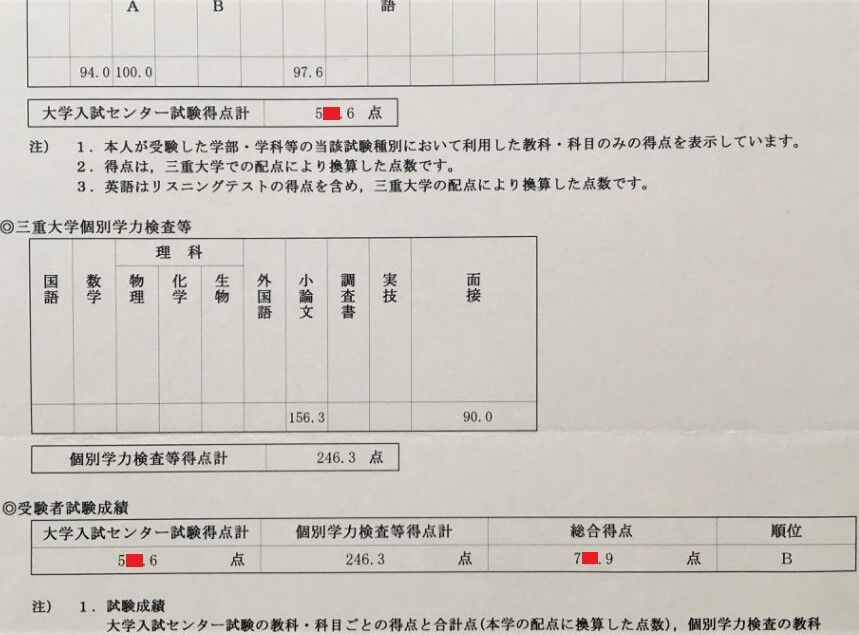 A B 語
94.0 100.0 97.6
大学入試センター試験得点計 5 .6 点
注） 1．本人が受験した学部・学科等の当該試験種別において利用した教科・科目のみの得点を表示しています。
2．得点は，三重大学での配点により換算した点数です。
3．英語はリスニングテストの得点を含め，三重大学の配点により換算した点数です。
◎三重大学個別学力検査等
理 科
国語 数学 物理 化学 生物 外国語 小論文 調査書 実技 面接
156.3 90.0
個別学力検査等得点計 246.3 点
◎受験者試験成績
大学入試センター試験得点計 個別学力検査等得点計 総合得点 順位
5 .6 点 246.3 点 7 .9 点 B
注） 1．試験成績
大学入試センター試験の教科・科目ごとの得点と合計点(本学の配点に換算した点数)，個別学力検査の教科